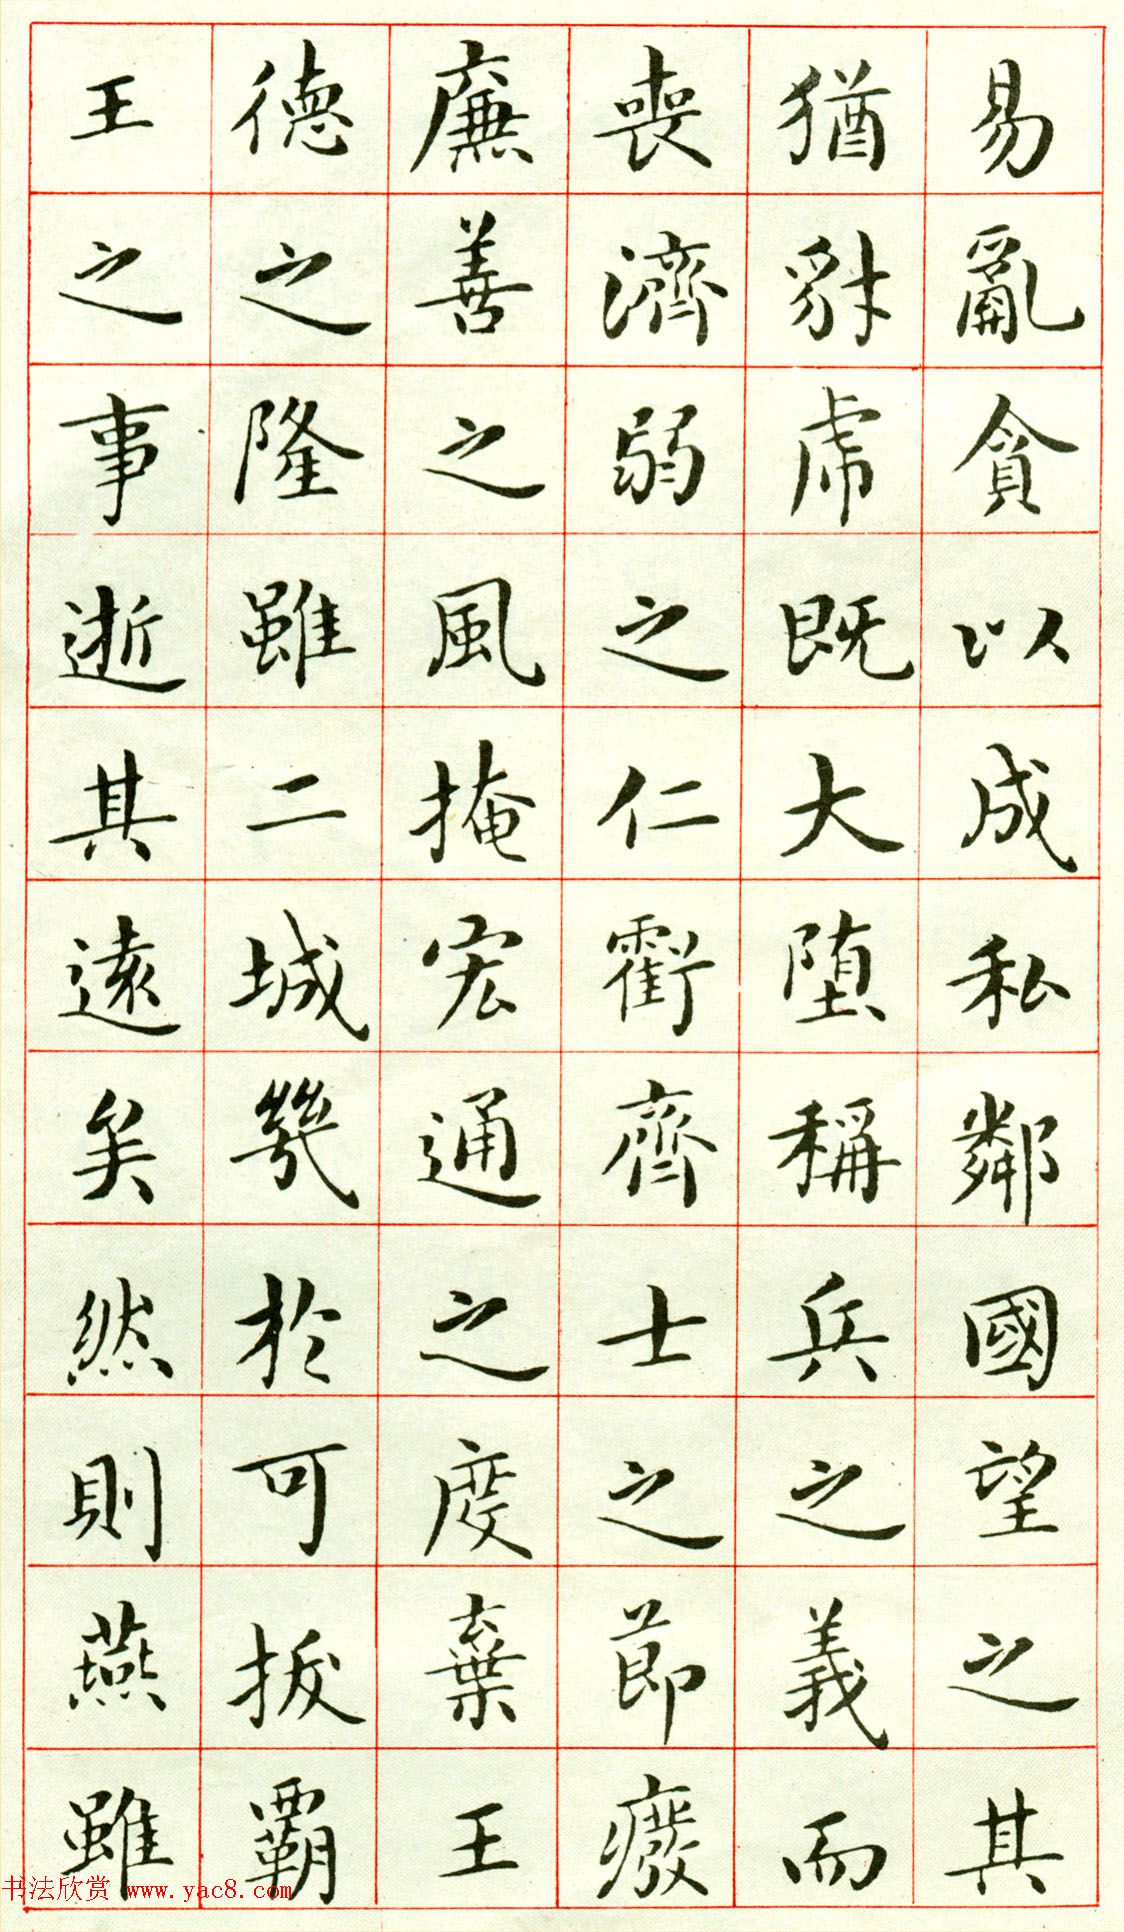 易亂貪以成私鄰國望之其
猶豺虎既大墮稱兵之義而
喪濟弱之仁虧齊士之節廢
廉善之風掩宏通之度棄王
德之隆雖二城幾於可拔霸
王之事逝其遠矣然則燕雖
书法欣赏 www.yac8.com